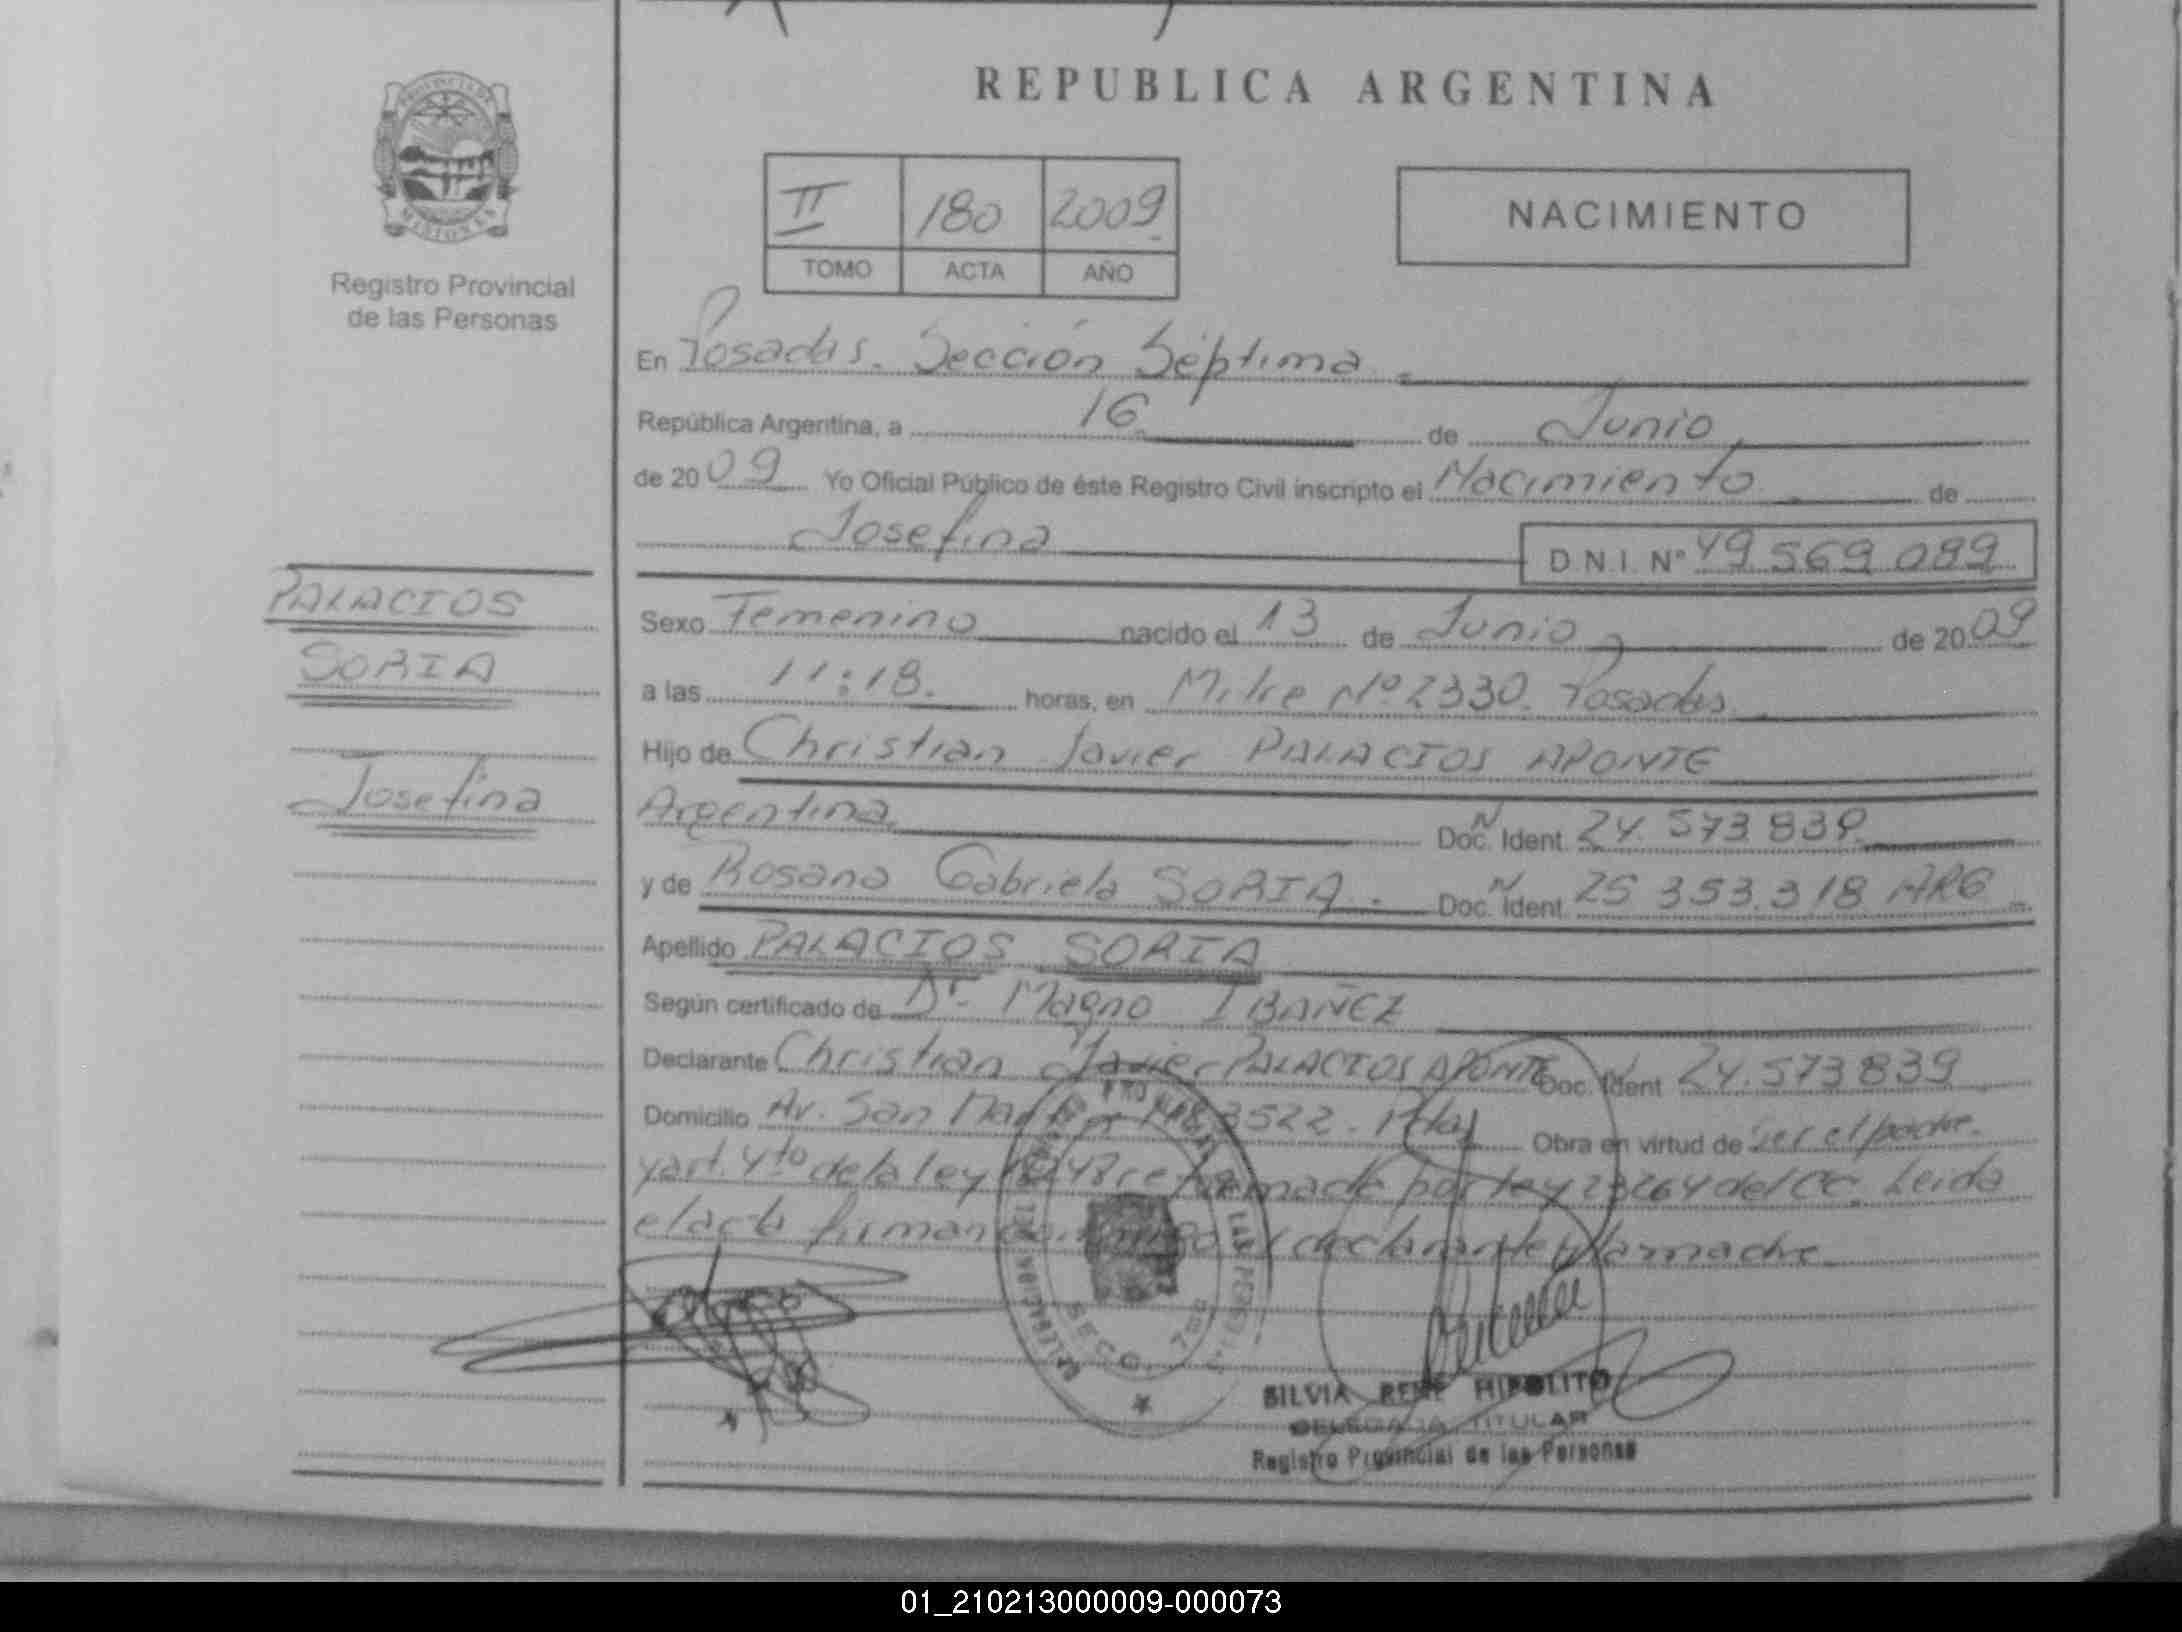 REPUBLICA ARGENTINA
PROVINCIA DE
MISIONES
Registro Provincial
de las Personas
II 180 2009
TOMO ACTA AÑO
NACIMIENTO
En Posadas. Sección Séptima
República Argentina, a 16 de Junio
de 2009 Yo Oficial Público de éste Registro Civil inscripto el Nacimiento de
Josefina D.N.I. Nº 49.569.089
PALACIOS
SORIA
Josefina
Sexo Femenino nacido el 13 de Junio de 2009
a las 11:18. horas, en Mitre Nº 2330. Posadas
Hijo de Christian Javier PALACIOS APONTE
Argentina. Doc. Ident. 24.573.839
y de Rosana Gabriela SORIA. Doc. Ident. 25.353.318 ARG
Apellido PALACIOS SORIA
Según certificado de Dr. Magno IBAÑEZ
Declarante Christian Javier PALACIOS APONTE Doc. Ident 24.573.839
Domicilio Av. San 3522. Obra en virtud de ser el padre.
y art. 4to de la ley por ley 23264 del CC. Leida
el acta firman declarante y la madre
SECC. 7ma
SILVIA RENE HIPOLITO
DELEGADA TITULAR
Registro Provincial de las Personas
01_210213000009-000073